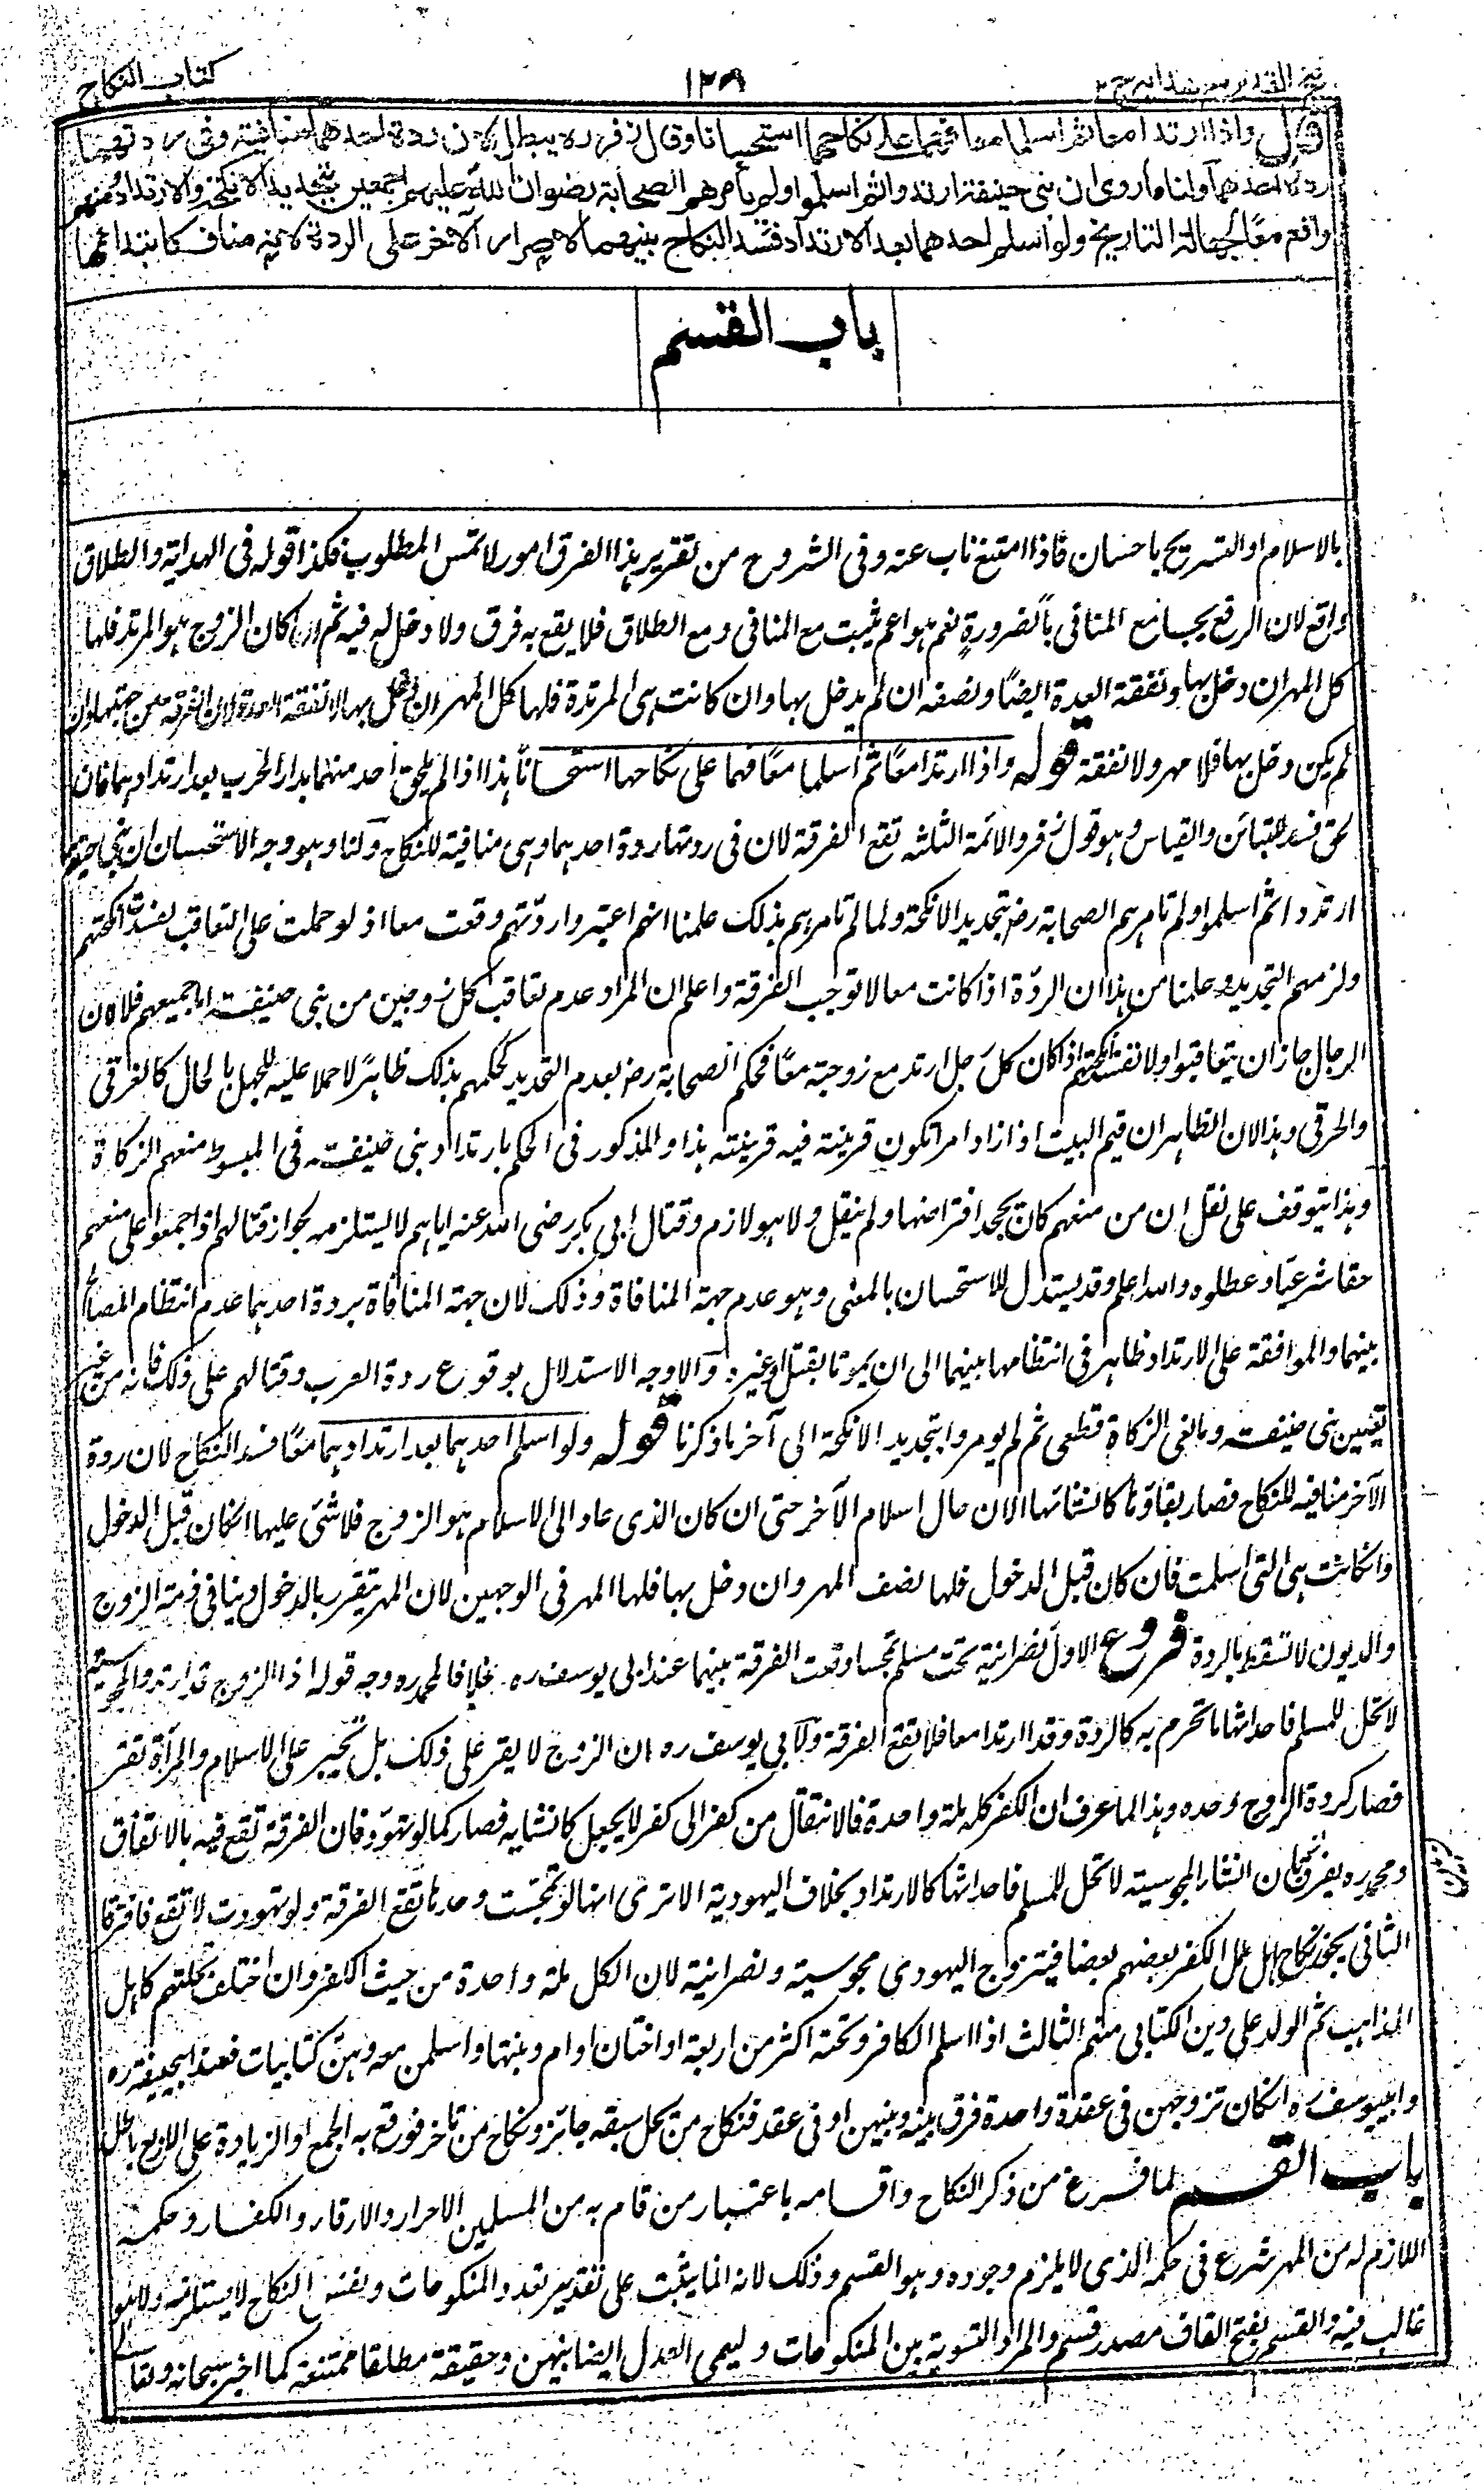 كتاب النكاح
١٢٩
قال واذا ارتدا معا ثم اسلما معا فهما على نكاحهما استحسانا وقال زفر ره يبطل لان ردة احدهما منافية وفى ردتهما
ردة احدهما ولنا ما روى ان بنى حنيفة ارتدوا ثم اسلموا ولم يأمرهم الصحابة رضوان الله عليهم اجمعين بتجديد الانكحة والارتداد منهم
واقع معًا لجهالة التاريخ ولو اسلم احدهما بعد الارتداد فسد النكاح بينهما لاصرار الآخر على الردة لانه مناف كابتدائها
باب القسم
بالاسلام او التسريح باحسان فاذا امتنع ناب عنه وفى الشروح من تقرير هذا الفرق امور لا تمس المطلوب فكذا قوله فى الهداية والطلاق
رافع لان الرفع يجامع المنافى بالضرورة نعم هو اعم يثبت مع المنافى ومع الطلاق فلا يقع به فرق ولا دخل له فيه ثم ان كان الزوج هو المرتد فلها
كل المهر ان دخل بها ونفقة العدة ايضًا ونصفه ان لم يدخل بها وان كانت هى المرتدة فلها كل المهر ان دخل بها لا نفقة العدة لان الفرقة من جهتها وان
لم يكن دخل بها فلا مهر ولا نفقة قوله واذا ارتدا معًا ثم اسلما معًا فهما على نكاحهما استحسانًا هذا اذا لم يلحق احد منهما بدار الحرب بعد ارتدادهما فان
لحق فسد للتباين والقياس وهو قول زفر والائمة الثلثة تقع الفرقة لان فى ردتهما ردة احدهما وهى منافية للنكاح ولنا وهو وجه الاستحسان ان بنى حنيفة
ارتدوا ثم اسلموا ولم تامرهم الصحابة رض بتجديد الانكحة ولما لم تامرهم بذلك علمنا انهم اعتبروا ردتهم وقعت معا اذ لو حملت على التعاقب لفسدت انكحتهم
ولزمهم التجديد وعلمنا من هذا ان الردّة اذا كانت معا لا توجب الفرقة واعلم ان المراد عدم تعاقب كل زوجين من بنى حنيفة اما جميعهم فلا لان
الرجال جاز ان يتعاقبوا ولا تفسد انكحتهم اذا كان كل رجل ارتد مع زوجته معًا فحكم الصحابة رض بعدم التجديد لحكمهم بذلك ظاهرًا لا حملا عليه للجهل بالحال كالغرقى
والحرقى وهذا لان الظاهر ان قيم البيت اذا اراد امرا تكون قرينته فيه قرينته هذا والمذكور فى الحكم بارتداد بنى حنيفة فى المبسوط منعهم الزكاة
وهذا يتوقف على نقل ان من منعهم كان يجحد افتراضها ولم ينقل ولا هو لازم وقتال ابى بكر رضى الله عنه اياهم لا يستلزمه لجواز قتالهم اذا اجمعوا على منعهم
حقا شرعيًا وعطلوه والله اعلم وقد يستدل للاستحسان بالمعنى وهو عدم جهة المنافاة وذلك لان جهة المنافاة بردة احدهما عدم انتظام المصالح
بينهما والموافقة على الارتداد ظاهر فى انتظامها بينهما الى ان يموتا بقتل او غيره والاوجه الاستدلال بوقوع ردة العرب وقتالهم على ذلك فانه من غير
تعيين بنى حنيفة ومانعى الزكاة قطعى ثم لم يومروا بتجديد الانكحة الى آخر ما ذكرنا قوله ولو اسلم احدهما بعد ارتدادهما معًا فسد النكاح لان ردة
الآخر منافيه للنكاح فصار بقاؤها كانشائها الان حال اسلام الآخر حتى ان كان الذى عاد الى الاسلام هو الزوج فلا شئ عليها انكان قبل الدخول
وانكانت هى التى اسلمت فان كان قبل الدخول فلها نصف المهر وان دخل بها فلها المهر فى الوجهين لان المهر يتقرر بالدخول دينا فى ذمة الزوج
والديون لا تسقط بالردة فروع الاول نصرانية تحت مسلم تمجسا وقعت الفرقة بينهما عند ابى يوسف ره خلافا لمحمد ره وجه قوله اذا الزوج قد ارتد والمجوسية
لا تحل للمسلم فاحداثها ما تحرم به كالردة وقد ارتدا معا فلا تقع الفرقة ولابى يوسف ره ان الزوج لا يقر على ذلك بل يجبر على الاسلام والمرأة تقر
فصار كردة الزوج وحده وهذا لما عرف ان الكفر كله ملة واحدة فالانتقال من كفر الى كفر لا يجعل كانشايه فصار كما لو تهوّد فان الفرقة تقع فيه بالاتفاق
ومحمد ره يفرق بان انشاء المجوسية لا تحل للمسلم فاحداثها كالارتداد بخلاف اليهودية الا ترى انها لو تمجست وحدها تقع الفرقة ولو تهودت لا تقع فافترقا
الثانى يجوز نكاح اهل ملل الكفر بعضهم بعضا فيتزوج اليهودى مجوسية ونصرانية لان الكل ملة واحدة من حيث الكفر وان اختلف نحلتهم كاهل
المذاهب ثم الولد على دين الكتابى منهم الثالث اذا اسلم الكافر وتحته اكثر من اربعة او اختان او ام وبنتها واسلمن معه وهن كتابيات فعند ابيحنيفة ره
وابيوسف ره انكان تزوجهن فى عقدة واحدة فرق بينه وبينهن او فى عقد فنكاح من يحل سبقه جائز ونكاح من تاخر فوقع به الجمع او الزيادة على الاربع باطل
باب القسم لما فرغ من ذكر النكاح واقسامه باعتبار من قام به من المسلمين الاحرار والارقاء والكفار وحكمه
اللازم له من المهر شرع فى حكمه الذى لا يلزم وجوده وهو القسم وذلك لانه انما يثبت على تقدير تعدد المنكوحات ونفس النكاح لا يستلزمه ولا هو
غالب فيه والقسم بفتح القاف مصدر قسم والمراد التسوية بين المنكوحات ويسمى العدل ايضا بينهن وحقيقة مطلقا ممتنعة كما اخبر سبحانه وتعالى